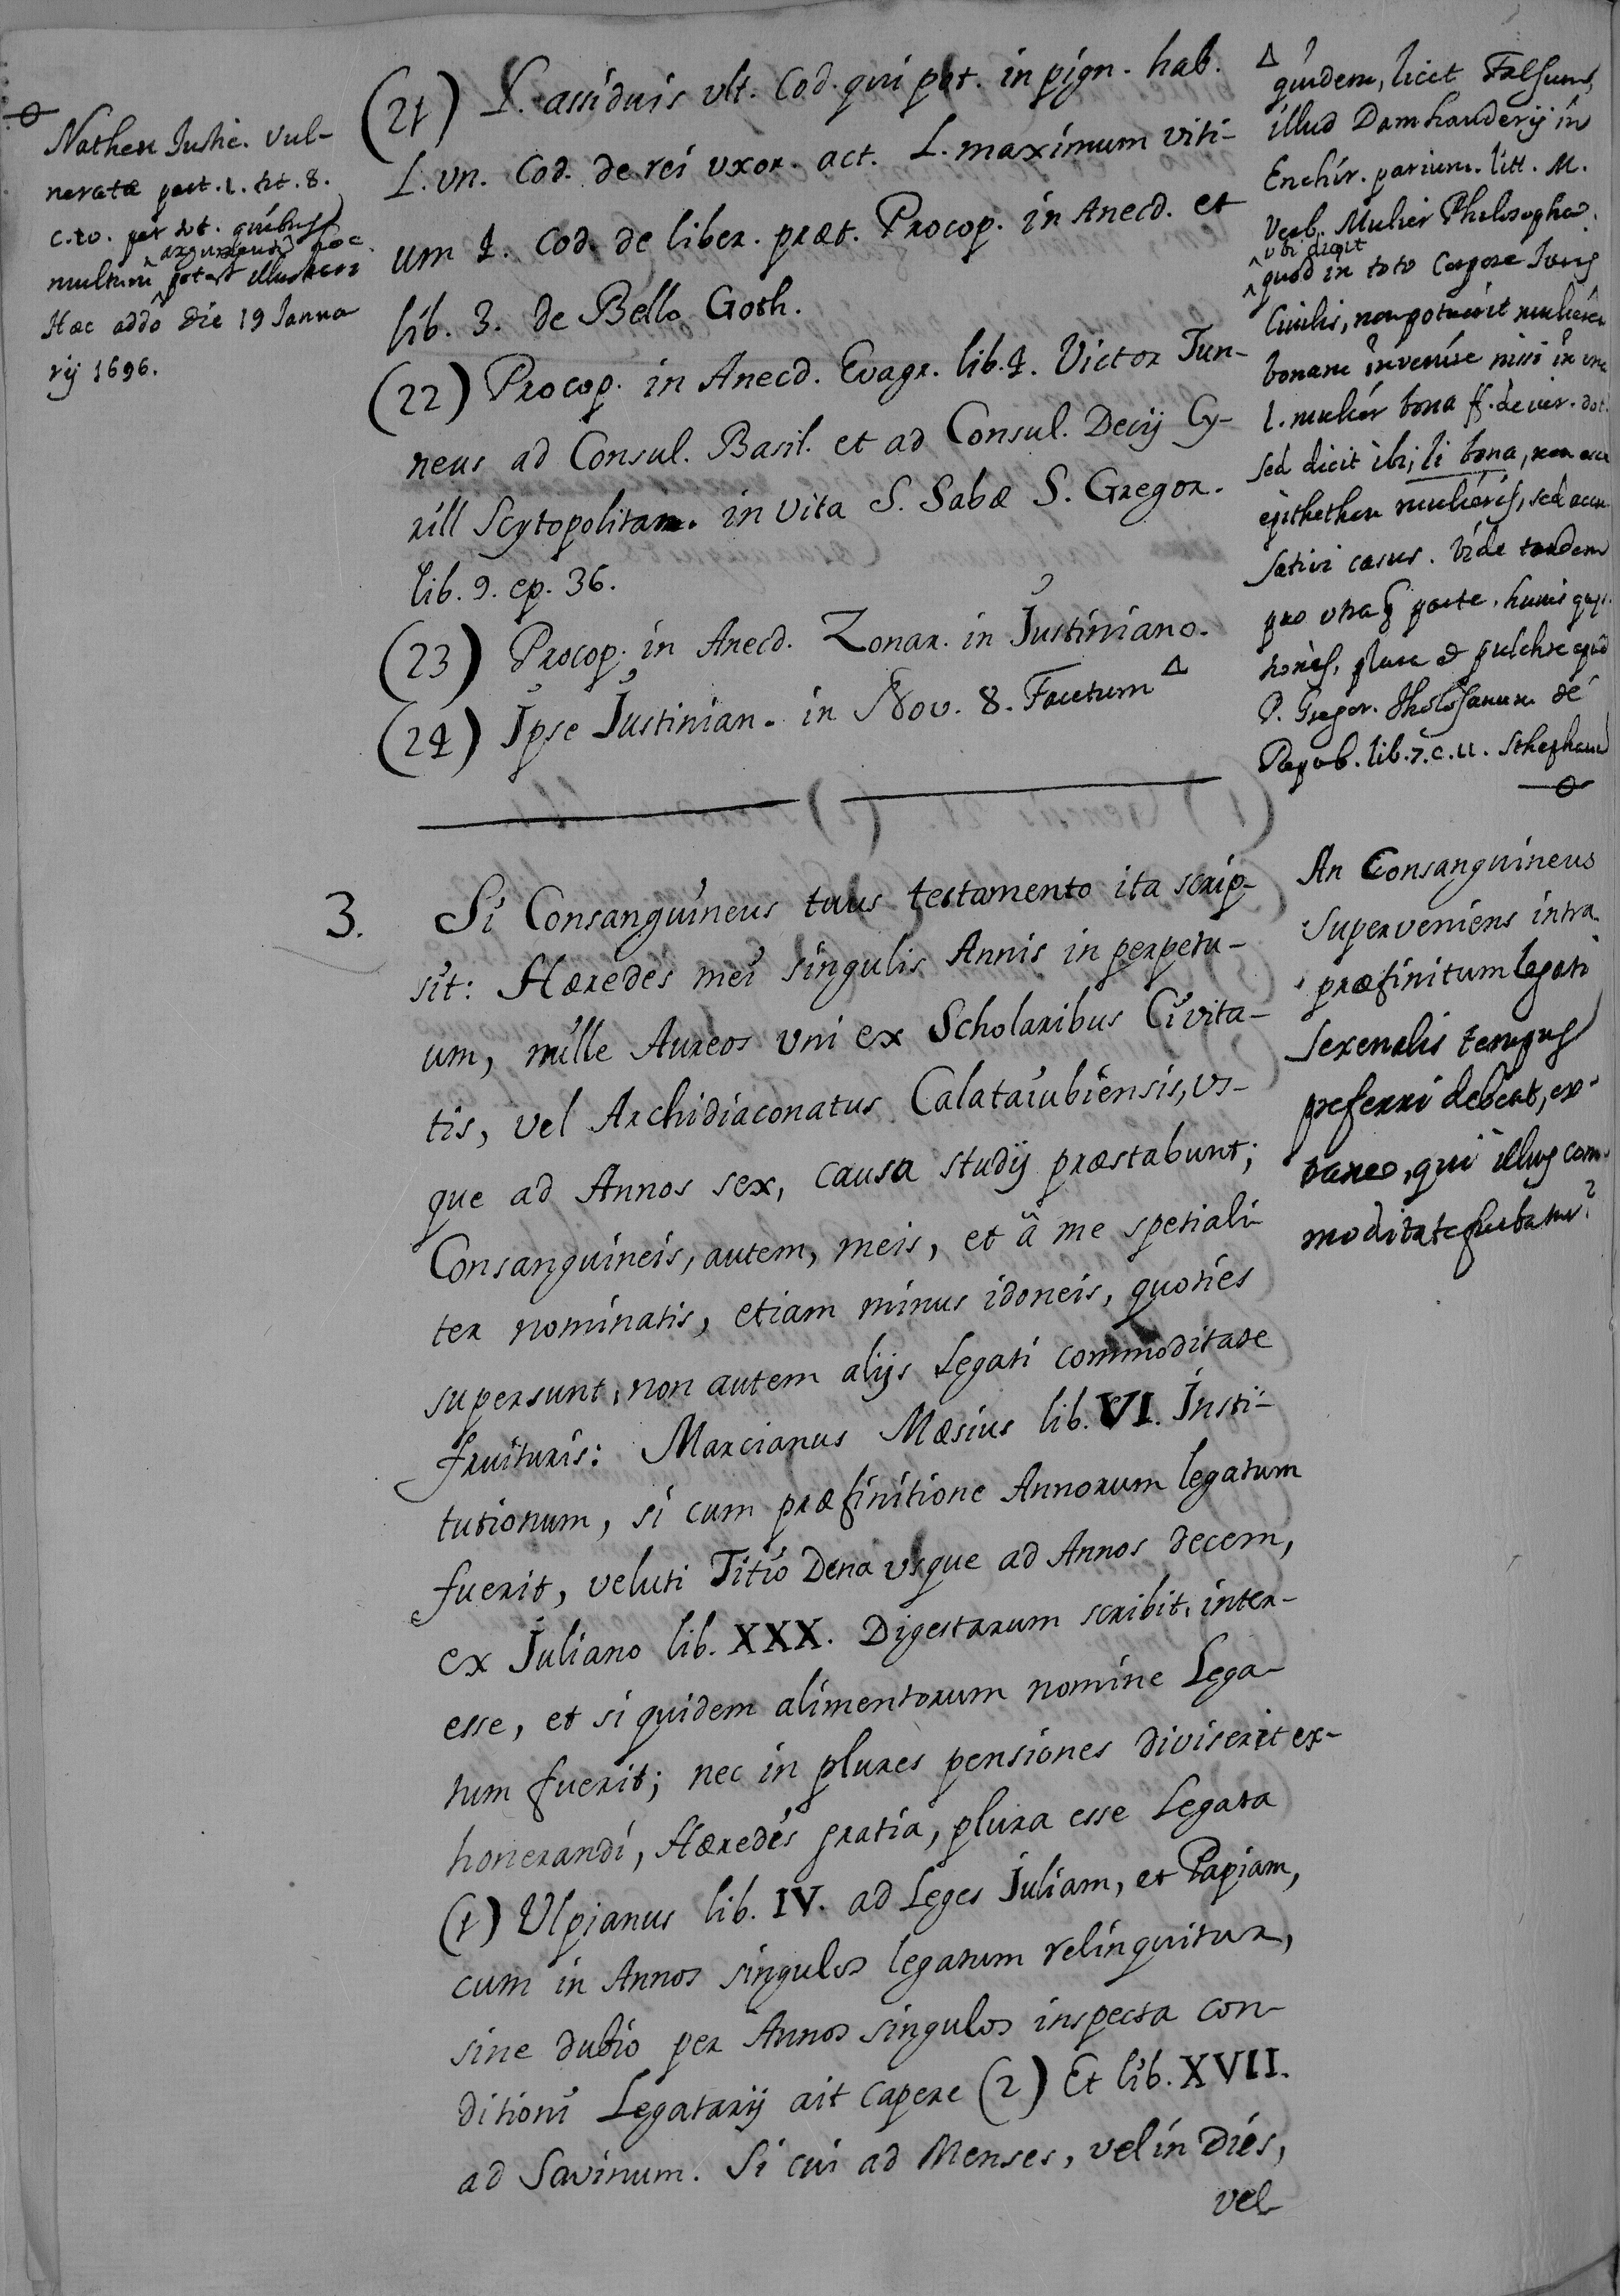 (21) L. assiduis vlt. Cod. qui pot. in pign. hab.
L. vn. Cod. de rei vxor. act. L. maximum viti-
um 4. Cod. de liber. præt. Procop. in Anecd. et
lib. 3. de Bello Goth.
(22) Procop. in Anecd. Evagr. lib. 4. Victor Tun-
neus ad Consul. Basil. et ad Consul. Decij Cy-
rill Scytopolitan. in vita S. Sabæ S. Gregor.
lib. 9. ep. 36.
(23) Procop. in Anecd. Zonar. in Justiniano.
(24) Ipse Justinian. in Nov. 8. Facetum Δ
Δ quidem, licet Falsum,
illud Damhauderij in
Enchir. parium. litt. M.
Verb. Mulier Philosopha.
vbi dicit
quod in toto Corpore Juris
Civilis, non potuerit mulierem
bonam invenire nisi in vna
l. mulier bona ff. de iur. dot.
sed dicit ibi, li bona, non esse
epithethon mulieris, sed accu-
sativi casus. Vide tandem
pro vtraq parte, huius
plura et pulchre apud
P. Gregor. Tholosanum de
Repub. lib. 7. c. 11. Stephanu
Nathen Justic. vul-
neratæ part. 1. tit. 8.
c. 10. per tot. quibus
argumentũ hoc
multum potest illustrari
Hæc addo die 19 Janua
rij 1696.
3. Si Consanguineus tuus testamento ita scrip-
sit: Hæredes mei singulis Annis in perpetu-
um, mille Aureos vni ex Scholaribus Civita-
tis, vel Archidiaconatus Calataiubiensis, vs-
que ad Annos sex, causa studij præstabunt;
Consanguineis, autem, meis, et â me spetiali-
ter nominatis, etiam minus idoneis, quoties
supersunt, non autem alijs Legati commoditate
fruituris: Marcianus Mæsius lib. VI. Insti-
tutionum, si cum præfinitione Annorum legatum
fuerit, veluti Titio Dena vsque ad Annos decem,
ex Juliano lib. XXX. Digestarum scribit, inter-
esse, et si quidem alimentorum nomine Lega-
tum fuerit; nec in plures pensiones diviserit ex-
honerandi, Hæredes gratia, plura esse Legata
(1) Ulpianus lib. IV. ad Leges Juliam, et Papiam,
cum in Annos singulos legatum relinquitur,
sine dubio per Annos singulos inspecta con-
ditioni Legatarij ait capere (2) Et lib. XVII.
ad Savinum. Si cui ad Menses, vel in Dies,
vel
An Consanguineus
superveniens intra
præfinitum legati
sexenalis tempus
preferri debeat, ex-
traneo, qui illius com-
moditate fruebatur?